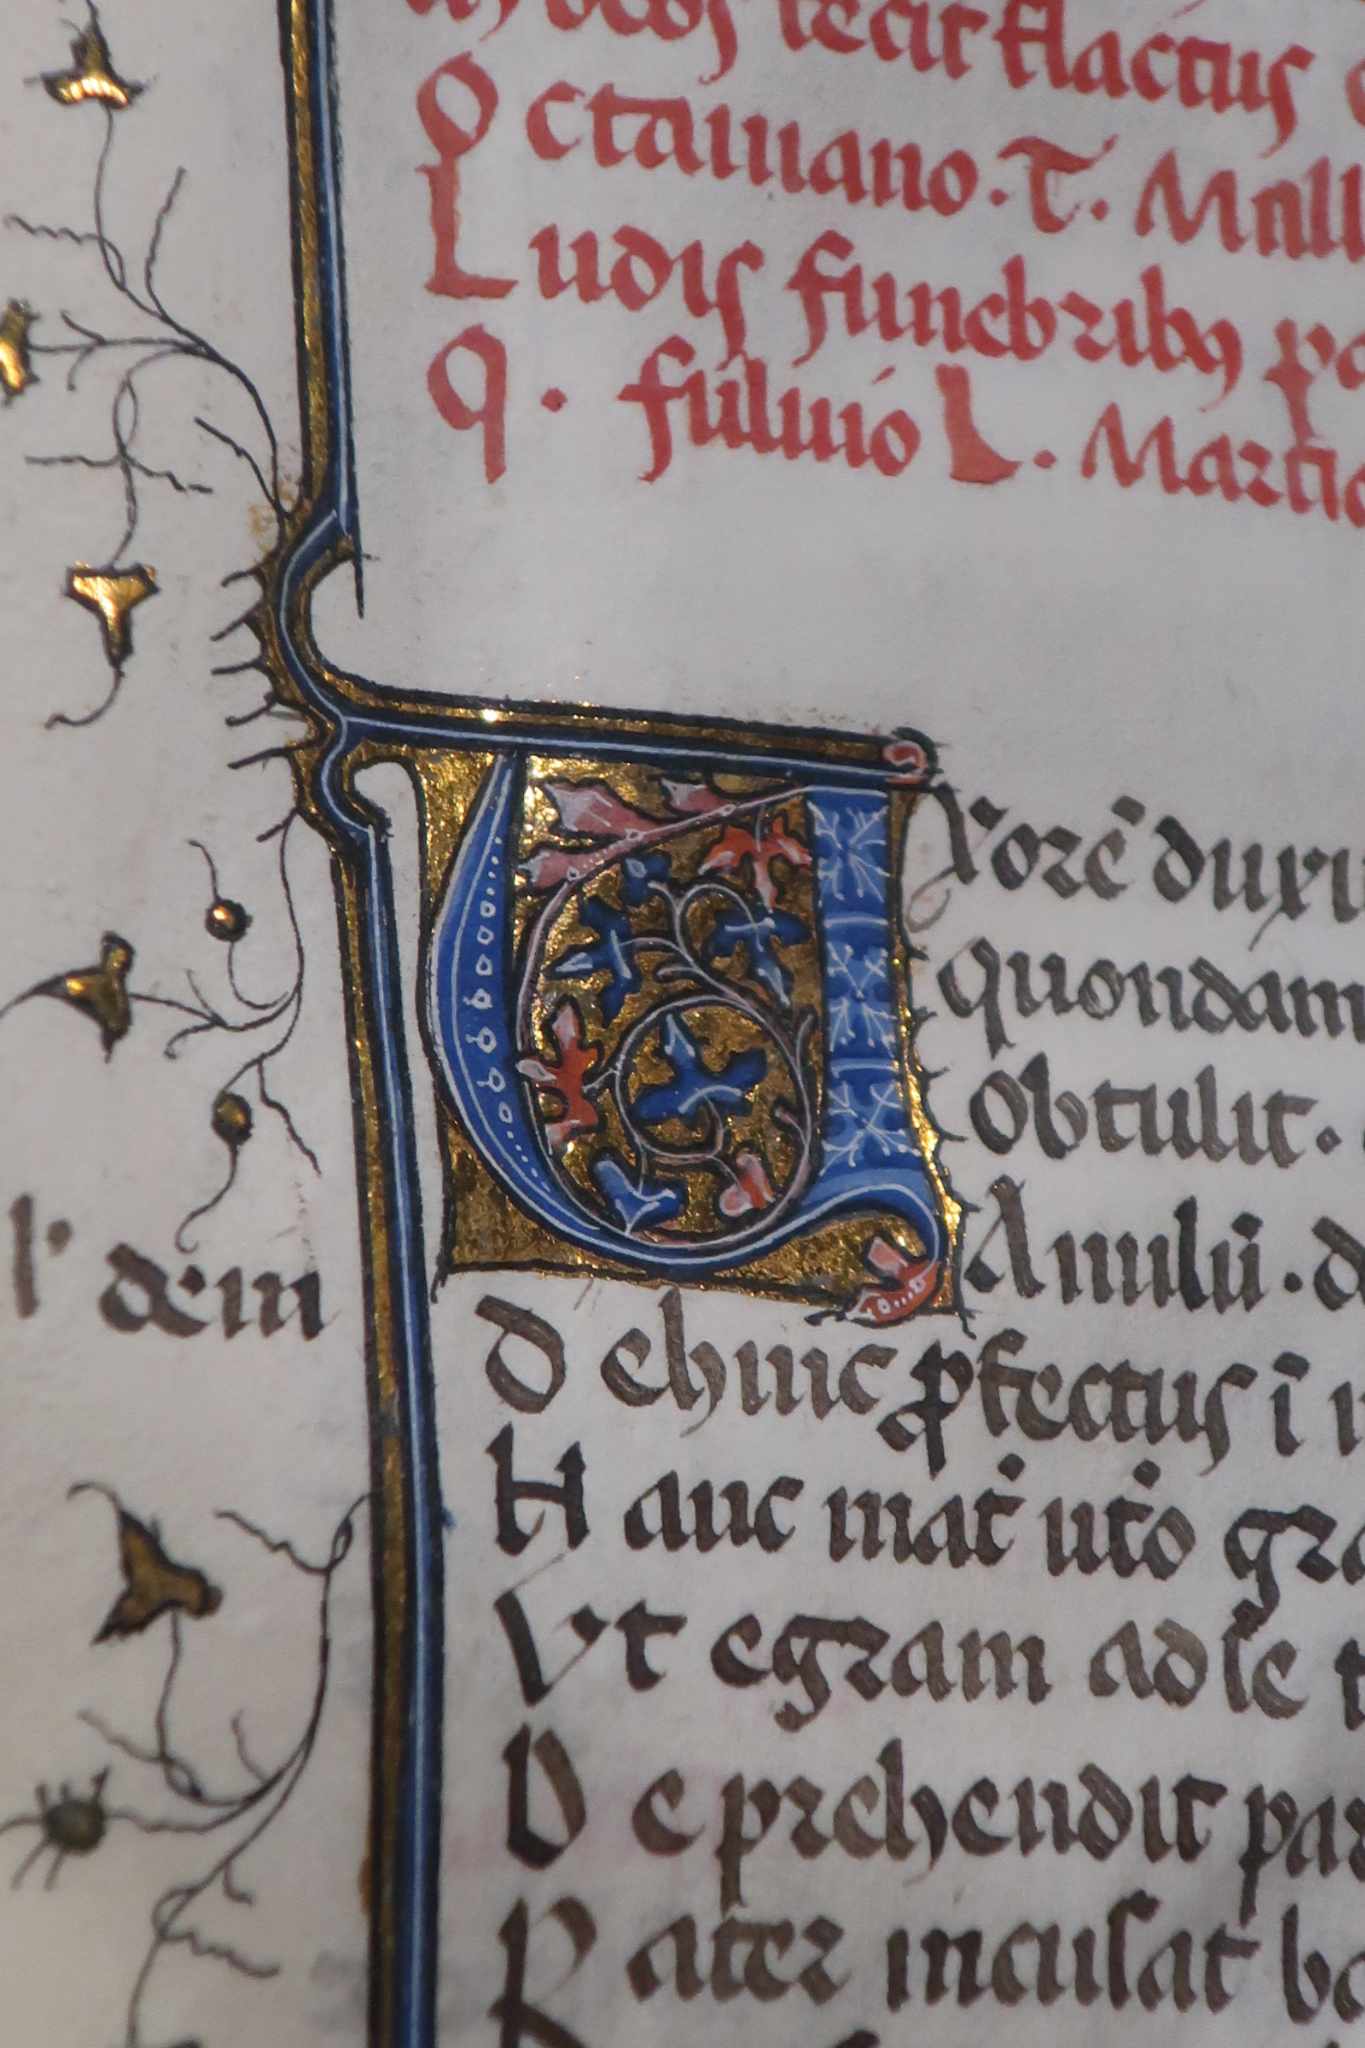 fecit flactus
Octauiano . T . Mall
Ludis funebribꝰ pa
q . fuluio L . Martio
Uxorē duxi
quondam
obtulit .
Anulū . d
l' dem
dehinc ꝓfectus ī
Hanc mat̓ ut̓o gra
Vt egram ad se t
Deprehendit par
Pater incusat ba